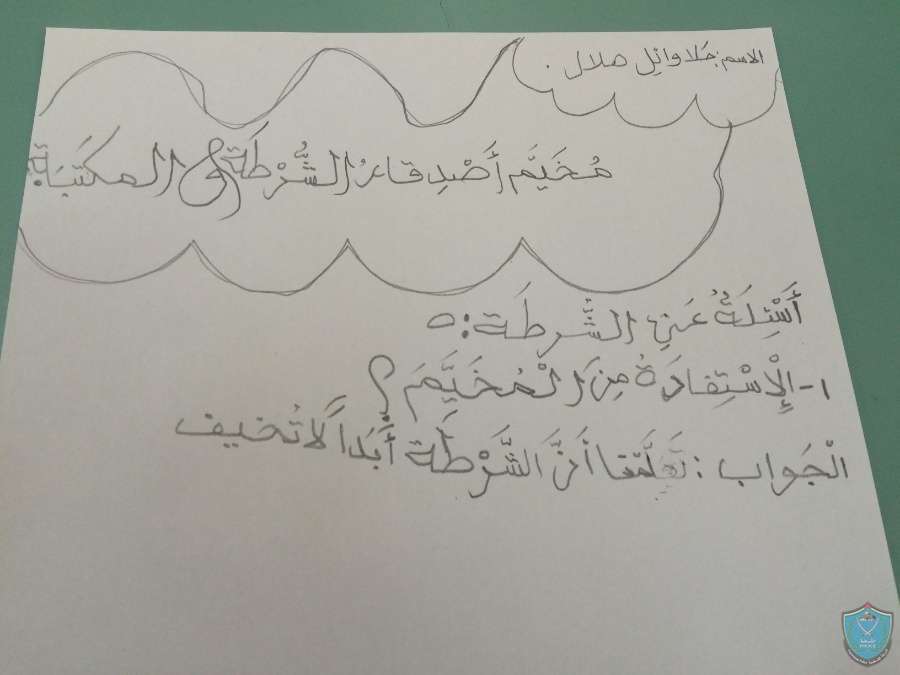 الاسم: جَلا وائِل هلال.
مُخَيَّم أَصْدِقاءُ الشُّرْطَة في المكتَبَة:
أَسْئِلَةٌ عَنِ الشُّرطَة:
١- الْإِسْتِفادَةُ مِنَ الْمُخَيَّمَ؟
الْجَواب: تَعَلَّمْنا أَنَّ الشَّرْطَة أَبَداً لا تُخيف